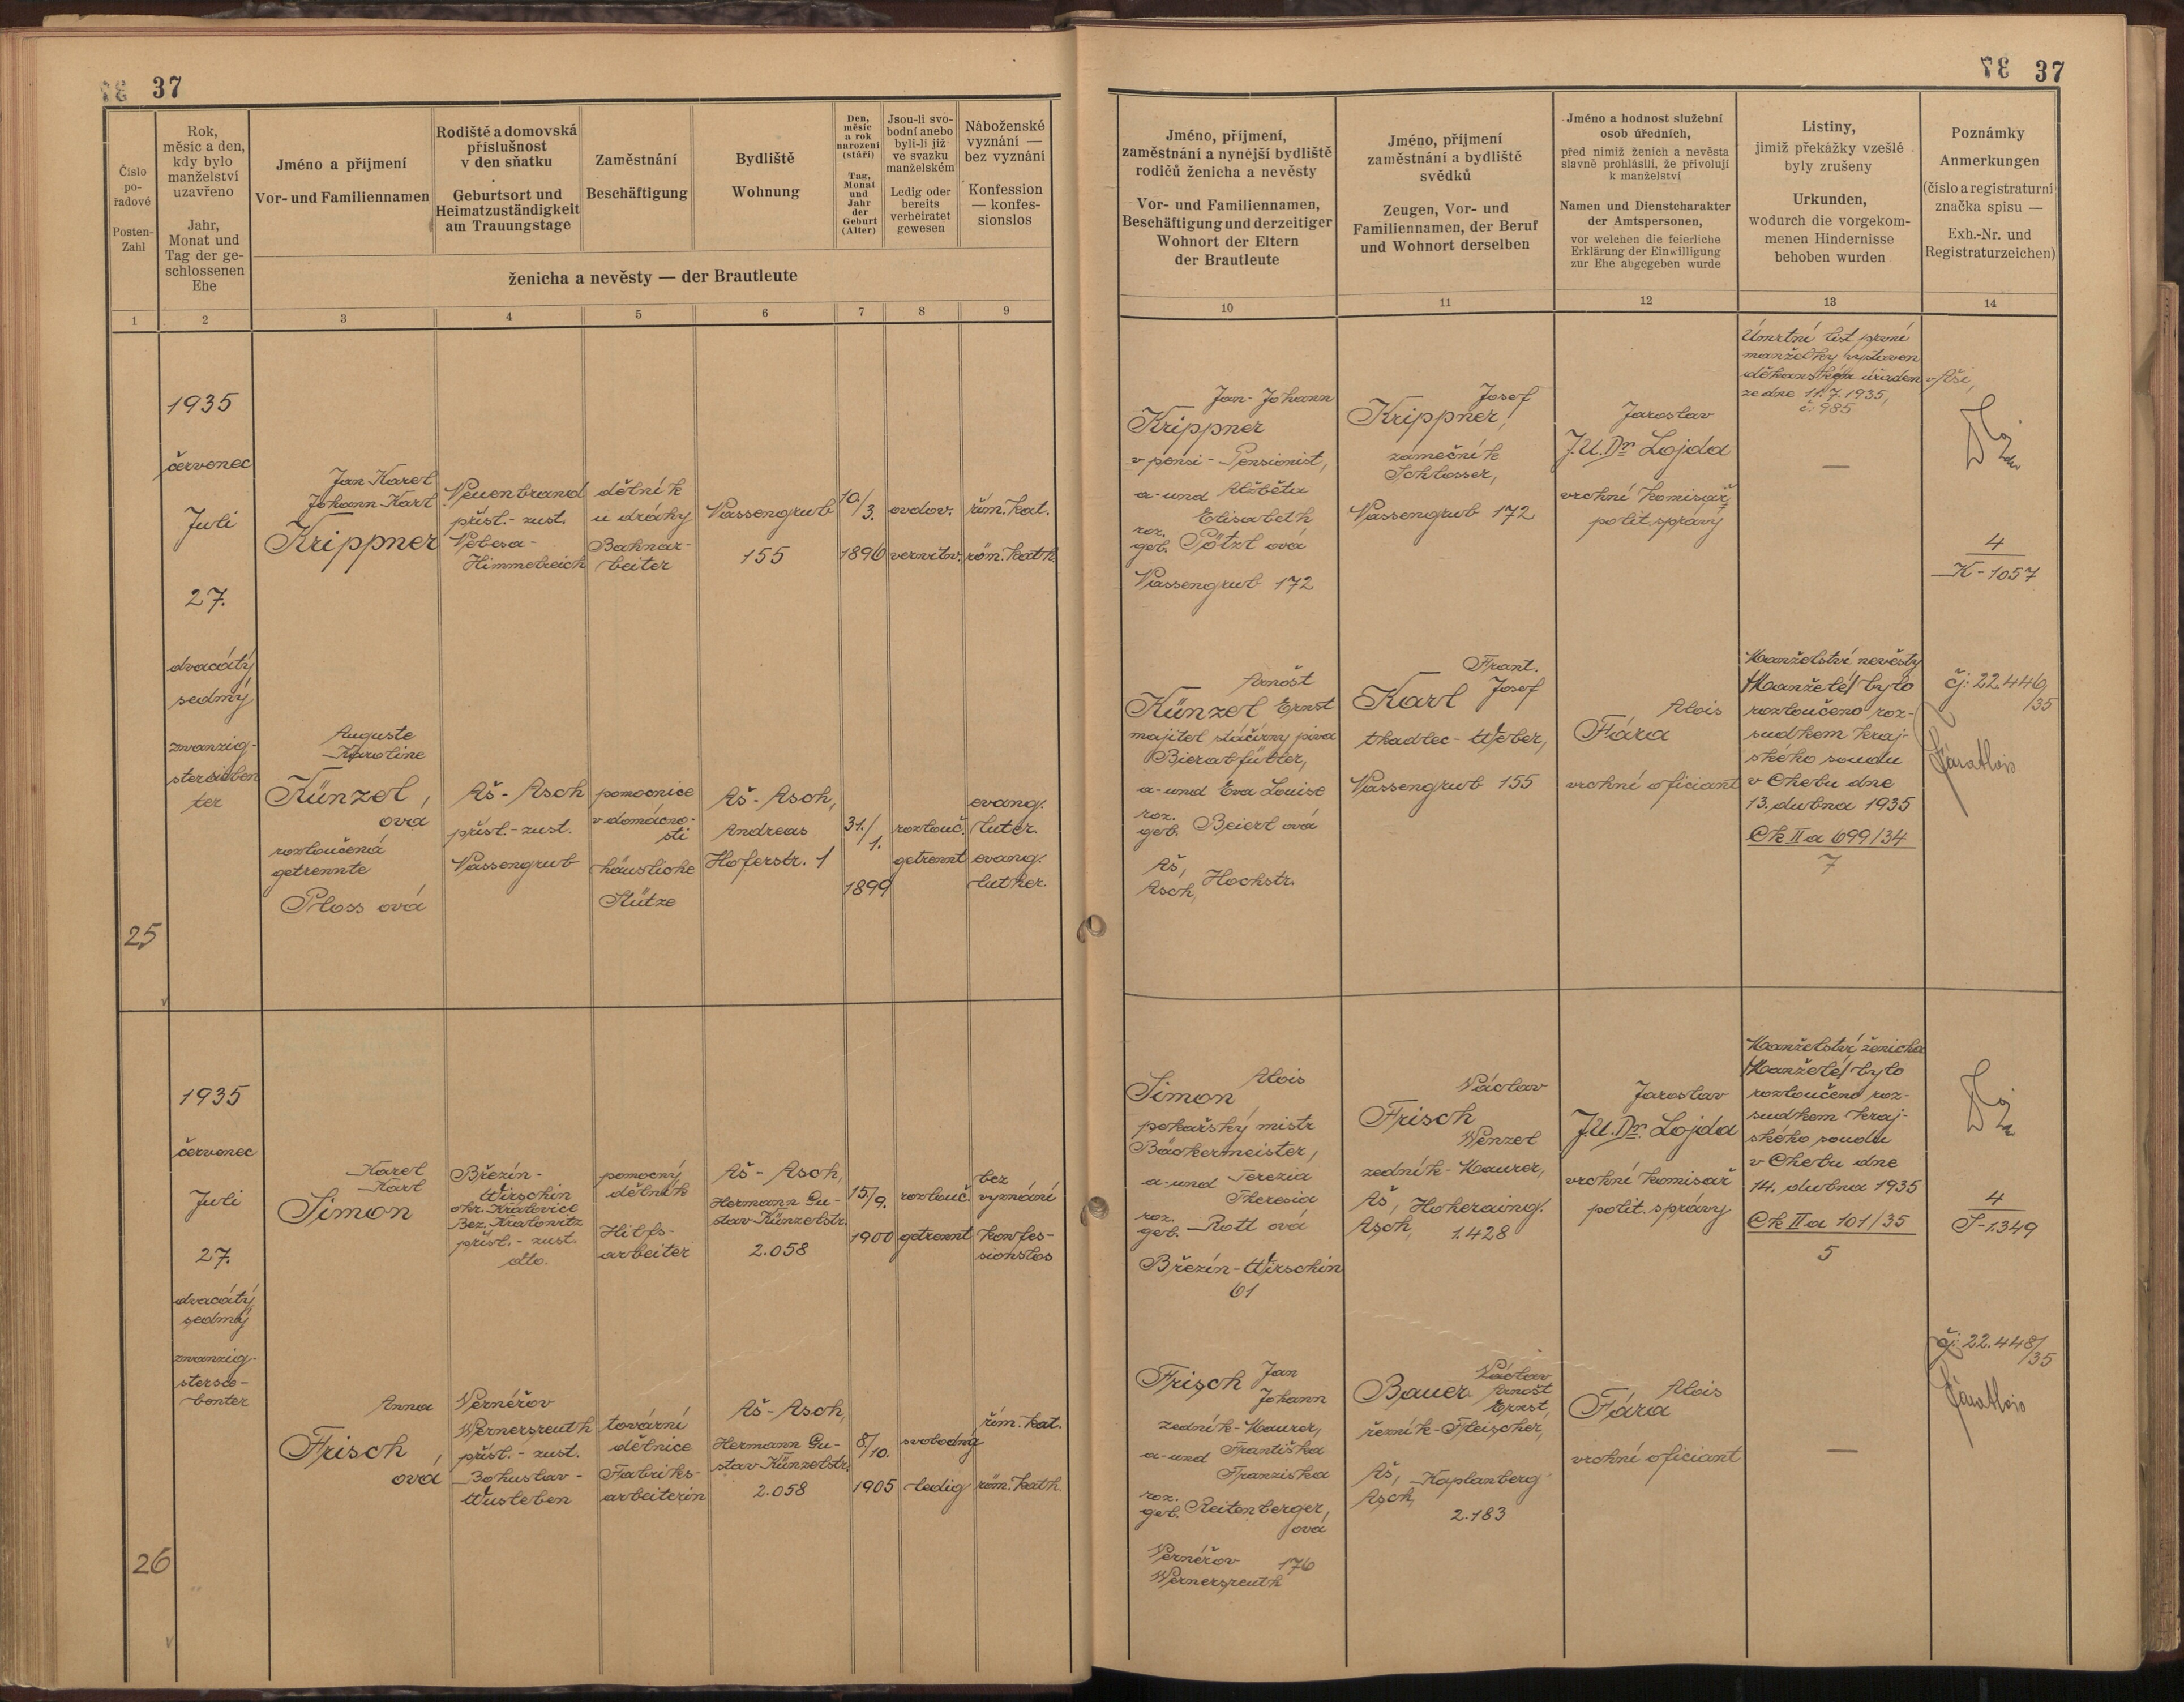 37
37
Číslo
po-
řadové
Posten-
Zahl
Rok,
měsíc a den,
kdy bylo
manželství
uzavřeno
Jahr,
Monat und
Tag der ge-
schlossenen
Ehe
Jméno a příjmení
Vor- und Familiennamen
Rodiště a domovská
příslušnost
v den sňatku
Geburtsort und
Heimatzuständigkeit
am Trauungstage
Zaměstnání
Beschäftigung
Bydliště
Wohnung
Den,
měsíc
a rok
narození
(stáří)
Tag,
Monat
und
Jahr
der
Geburt
(Alter)
Jsou-li svo-
bodní anebo
byli-li již
ve svazku
manželském
Ledig oder
bereits
verheiratet
gewesen
Náboženské
vyznání —
bez vyznání
Konfession
— konfes-
sionslos
ženicha a nevěsty — der Brautleute
1 2 3 4 5 6 7 8 9
1935
červenec
Juli
27.
dvacátý
sedmý
zwanzig-
stersieben
ter
Jan Karel
Johann Karl
Krippner
Neuenbrand
přísl. - zust.
Nebesa -
Himmelreich
dělník
u dráhy
Bahnar-
beiter
Nassengrub
155
10/3.
1896
ovdov.
verwitw.
řím. kat.
röm. kath.
Auguste
Karoline
Künzel,
ová
rozloučená
getrennte
Ploss ová
Aš - Asch
přísl. - zust.
Nassengrub
pomocnice
v domácno-
sti
häusliche
Stütze
Aš - Asch,
Andreas
Hoferstr. 1
31./1.
1899
rozlouč.
getrennt
evang.
luter.
evang.
luther.
25
1935
červenec
Juli
27.
dvacátý
sedmý
zwanzig-
stersie-
benter
Karel
Karl
Simon
Březín -
Wirschin
okr. Kralovice
Bez. Kralowitz
přísl. - zust.
dto.
pomocný
dělník
Hilfs-
arbeiter
Aš - Asch,
Hermann Gu-
stav Künzelstr.
2.058
15/9.
1900
rozlouč.
getrennt
bez
vyznání
konfes-
sionslos
Anna
Frisch,
ová
Vernéřov
Wernersreuth
přísl. - zust.
Bohuslav -
Wusleben
tovární
dělnice
Fabriks-
arbeiterin
Aš - Asch,
Hermann Gu-
stav Künzelstr.
2.058
8/10.
1905
svobodný
ledig
řím. kat.
röm. kath.
26
37
37
Jméno, příjmení,
zaměstnání a nynější bydliště
rodičů ženicha a nevěsty
Vor- und Familiennamen,
Beschäftigung und derzeitiger
Wohnort der Eltern
der Brautleute
Jméno, příjmení
zaměstnání a bydliště
svědků
Zeugen, Vor- und
Familiennamen, der Beruf
und Wohnort derselben
Jméno a hodnost služební
osob úředních,
před nimiž ženich a nevěsta
slavně prohlásili, že přivolují
k manželství
Namen und Dienstcharakter
der Amtspersonen,
vor welchen die feierliche
Erklärung der Einwilligung
zur Ehe abgegeben wurde
Listiny,
jimiž překážky vzešlé
byly zrušeny
Urkunden,
wodurch die vorgekom-
menen Hindernisse
behoben wurden
Poznámky
Anmerkungen
(číslo a registraturní
značka spisu —
Exh.-Nr. und
Registraturzeichen)
10 11 12 13 14
Jan - Johann
Krippner
v pensi - Pensionist,
a - und Alžběta
Elisabeth
roz.
geb. Pötzl ová
Nassengrub 172
Josef
Krippner,
zámečník
Schlosser,
Nassengrub 172
Jaroslav
J.U.Dr. Lojda
vrchní komisař
polit. správy
Úmrtní list první
manželky vystaven
děkanským úřadem v Aši,
ze dne 11.7.1935,
č. 985
—
4
K - 1057
Arnošt
Künzel Ernst
majitel stáčírny piva
Bierabfüller,
a - und Eva Louise
roz.
geb. Beierl ová
Aš,
Asch, Hochstr.
Frant.
Karl Josef
tkadlec - Weber,
Nassengrub 155
Alois
Fára
vrchní oficiant
Manželství nevěsty
/Manželé/ bylo
rozloučeno roz-
sudkem kraj-
ského soudu
v Chebu dne
13. dubna 1935
Ck II a 699/34
7
čj: 22.446/35
Fára Alois
Alois
Simon
pekařský mistr
Bäckermeister,
a - und Terezia
Theresia
roz.
geb. Rott ová
Březín - Wirschin
61
Václav
Frisch
Wenzel
zedník - Maurer,
Aš, Hoheraing.
Asch, 1.428
Jaroslav
J.U.Dr. Lojda
vrchní komisař
polit. správy
Manželství ženicha
/Manželé/ bylo
rozloučeno roz-
sudkem kraj-
ského soudu
v Chebu dne
14. dubna 1935
Ck II a 101/35
5
4
S - 1.349
Frisch Jan
Johann
zedník - Maurer,
a - und Františka
Franziska
roz.
geb. Reitenberger,
ová
Vernéřov 176
Wernersreuth
Václav
Bauer Arnošt
Ernst,
řezník - Fleischer,
Aš, Kaplanberg
Asch,
2.183
Alois
Fára
vrchní oficiant
—
čj: 22.448/35
Fára Alois